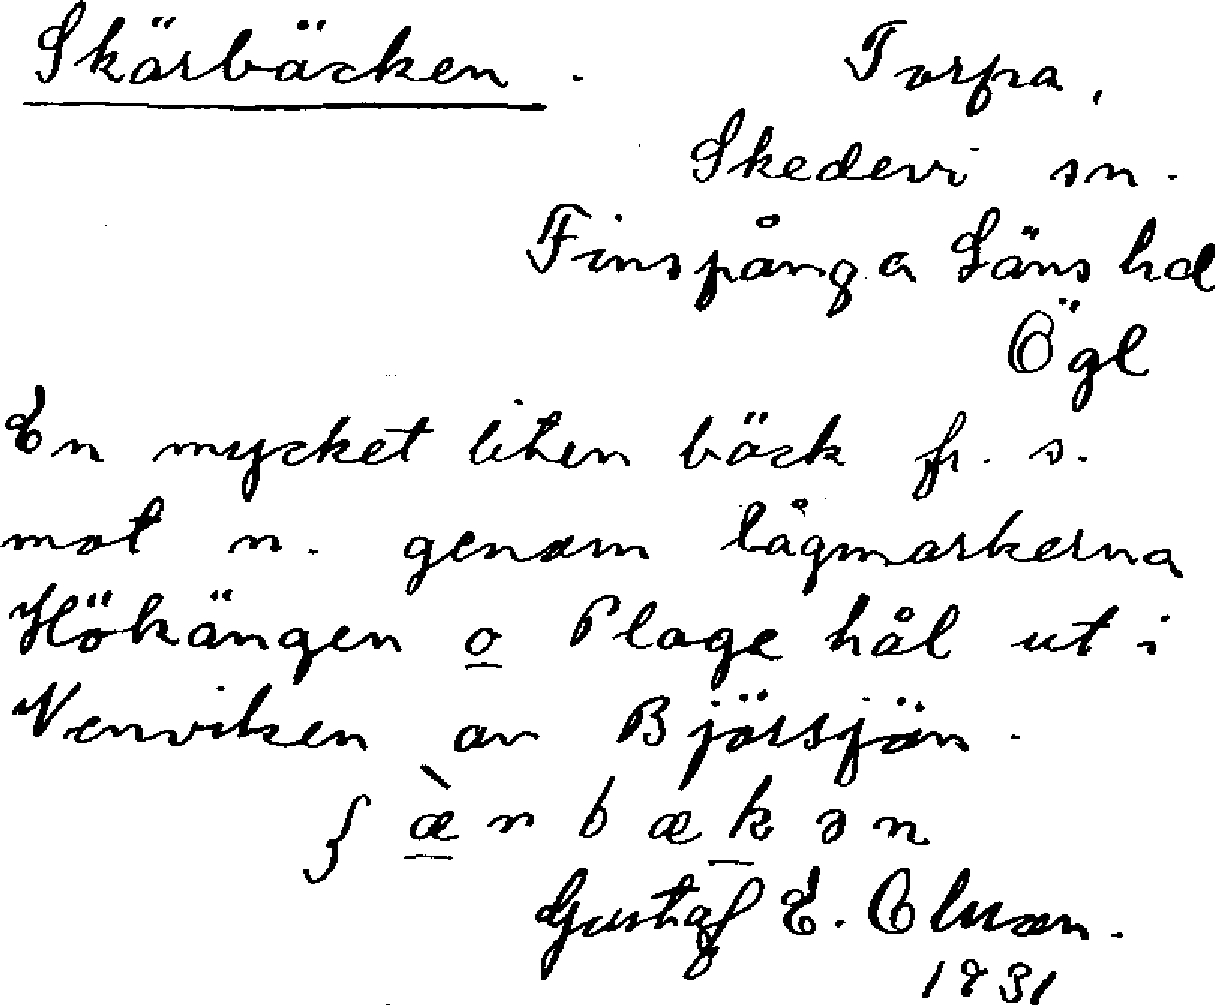 Skärbäcken. Torpa,
Skedevi sn.
Finspånga Läns hd
Ögl
En mycket liten bäck fr. s.
mot n. genom lågmarkerna
Hökängen o Plage hål ut i
Venviken av Björsjön.
ʃæ̀rbækən
Gustaf E.
1931